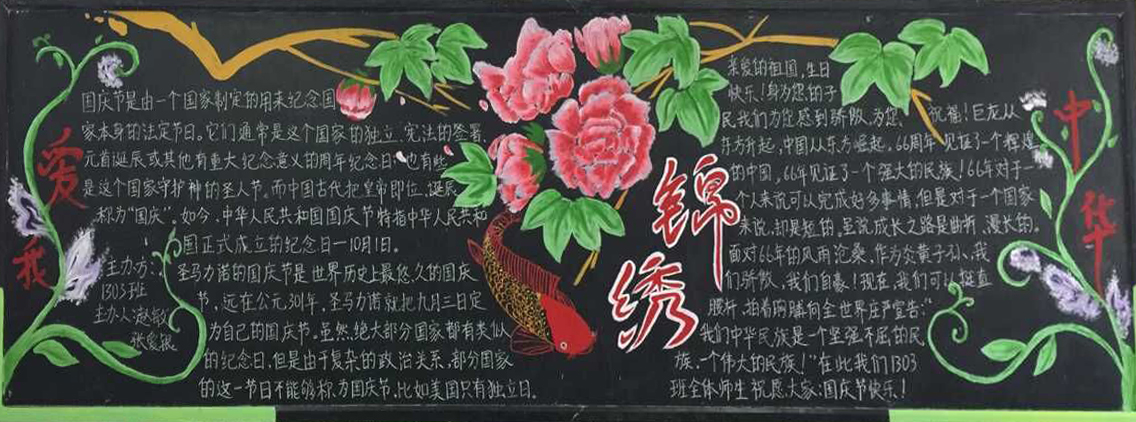 爱我
国庆节是由一个国家制定的用来纪念国
家本身的法定节日。它们通常是这个国家的独立、宪法的签署、
元首诞辰或其他有重大纪念意义的周年纪念日;也有些
是这个国家守护神的圣人节。而中国古代把皇帝即位、诞辰
称为“国庆”。如今,中华人民共和国国庆节特指中华人民共和
国正式成立的纪念日—10月1日。
圣马力诺的国庆节是世界历史上最悠久的国庆
节,远在公元301年,圣马力诺就把九月三日定
为自己的国庆节。虽然绝大部分国家都有类似
的纪念日,但是由于复杂的政治关系,部分国家
的这一节日不能够称为国庆节,比如美国只有独立日。
主办方:
1303班
主办人:赵敏
锦绣
亲爱的祖国,生日
快乐!身为您的子
民我们为您感到骄傲,为您祝福!巨龙从
东方升起,中国从东方崛起。66周年见证了一个辉煌
的中国,66年见证了一个强大的民族!66年对于一
个人来说可以完成好多事情,但是对于一个国家
来说,却是短的,虽说成长之路是曲折、漫长的。
面对66年的风雨沧桑,作为炎黄子孙,我
们骄傲,我们自豪!现在,我们可以挺直
腰杆,拍着胸脯向全世界庄严宣告:“
我们中华民族是一个坚强不屈的民
族,一个伟大的民族!”在此我们1303
班全体师生祝愿大家:国庆节快乐!
中华